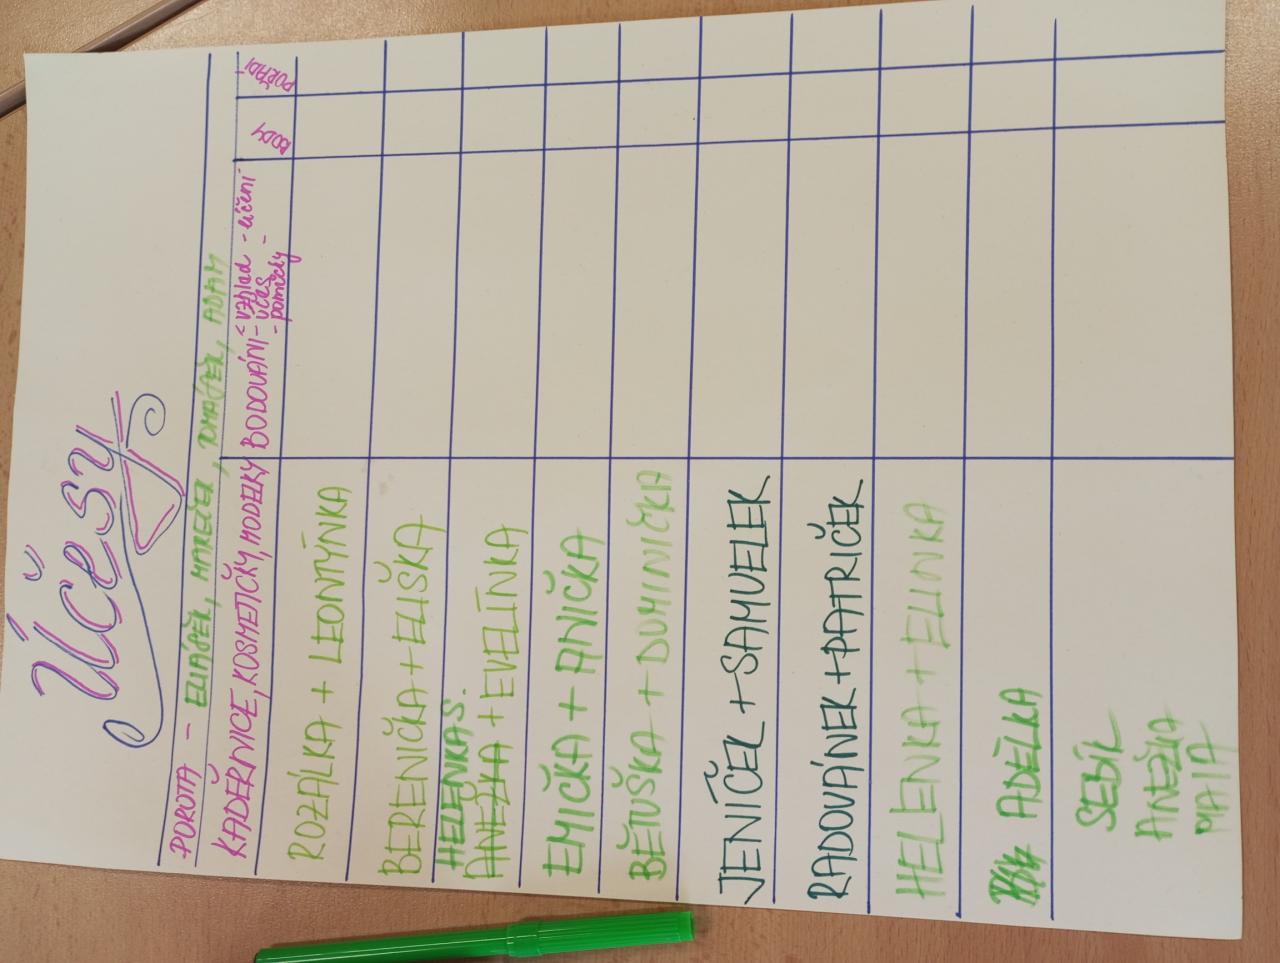 Účesy
POROTA - ELIÁŠEK, MAREČEK, TOMÁŠEK, ADAM
KADEŘNICE, KOSMETIČKY, MODELKY
BODOVÁNÍ
- vzhled - líčení
- účes -
- pomůcky
BODY
POŘADÍ
ROZÁLKA + LEONTÝNKA
BERENIČKA + ELIŠKA
HELENKA S.
ANEŽKA + EVELÍNKA
EMIČKA + ANIČKA
BĚTUŠKA + DOMINIČKA
JENÍČEK + SAMUELEK
RADOVÁNEK + PATRIČEK
HELENKA + ELINKA
ADÉLKA
SEBÍL
ANEŽIA
MAIA